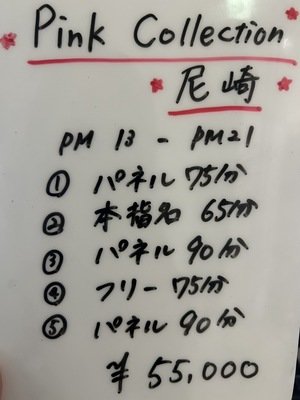 Pink Collection
尼崎
PM 13 - PM21
① パネル 75分
② 本指名 65分
③ パネル 90分
④ フリー 75分
⑤ パネル 90分
¥ 55,000